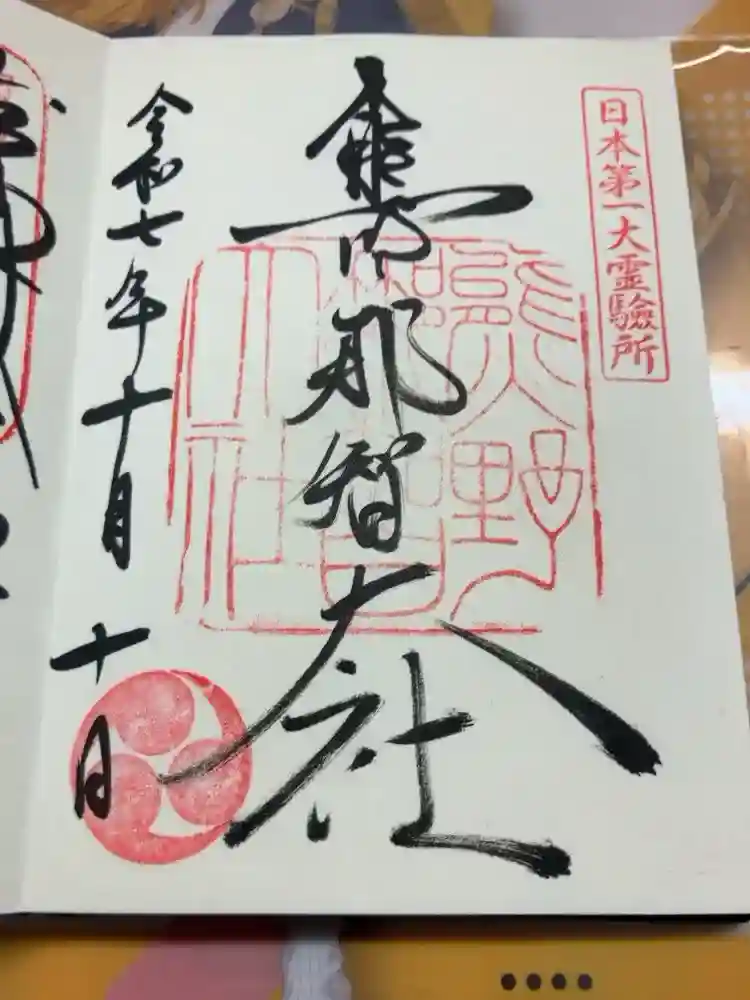 日本第一大霊験所
那智大社
令和七年十月十日
熊野
大社